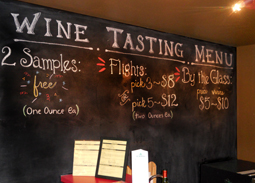 WINE TASTING MENU
2 Samples:
free
(One Ounce ea)
Flights:
pick 3~$8
pick 5~$12
(two ounces ea)
By the Glass:
$5~$10